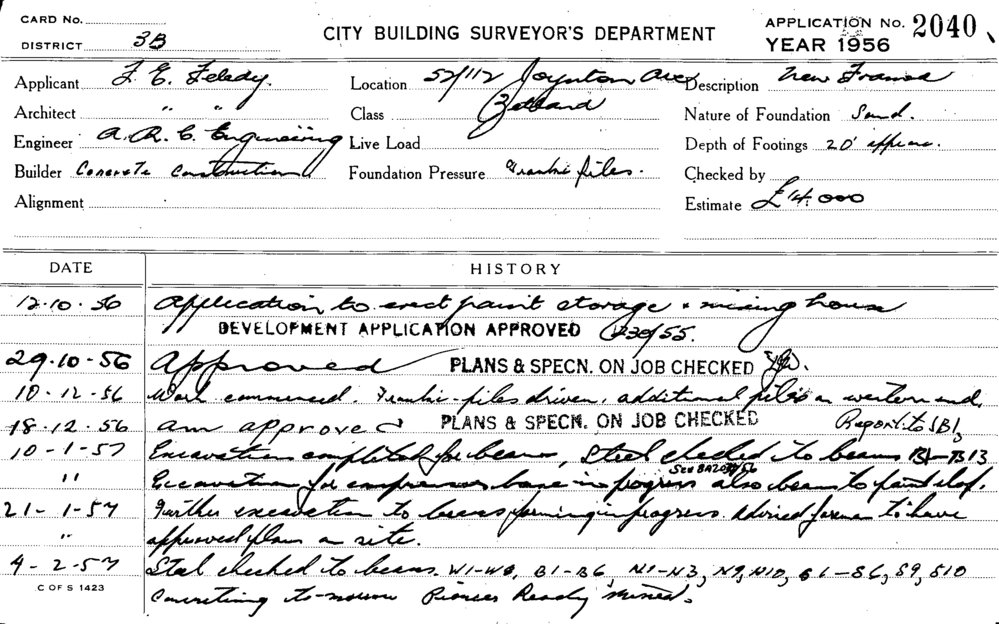 CARD No.
DISTRICT 3B
CITY BUILDING SURVEYOR'S DEPARTMENT
APPLICATION No. 2040
YEAR 1956
Applicant F. E. Feledy.
Location 52/112 Joynton Ave
Description New Framed
Architect " "
Class Zetland
Nature of Foundation Sand.
Engineer A. R. C. Engineering
Live Load
Depth of Footings 20' approx.
Builder Concrete Construction
Foundation Pressure Franki piles.
Checked by
Alignment
Estimate £14,000
DATE HISTORY
12.10.56 Application to erect paint storage & mixing house
DEVELOPMENT APPLICATION APPROVED 1230/55.
29.10-56 Approved PLANS & SPECN. ON JOB CHECKED
10-12-56 Work commenced. Franki-piles driven, additional piles on western end.
18-12-56 am approved PLANS & SPECN. ON JOB CHECKED Report to SB1,
10-1-57 Excavation completed for beams, Steel checked to beams B1-B13
See BA 2079/56
" Excavation for compressor base in progress also beams to paint shop.
21-1-57 Further excavation to beams, forming in progress. Advised foreman to have
" approved plans on site.
4-2-57 Steel checked to beams. W1-W8, B1-B6, N1-N3, N9, N10, S1-S6, S9, S10
C OF S 1423
Concreting to-morrow Pioneer Ready Mixed.